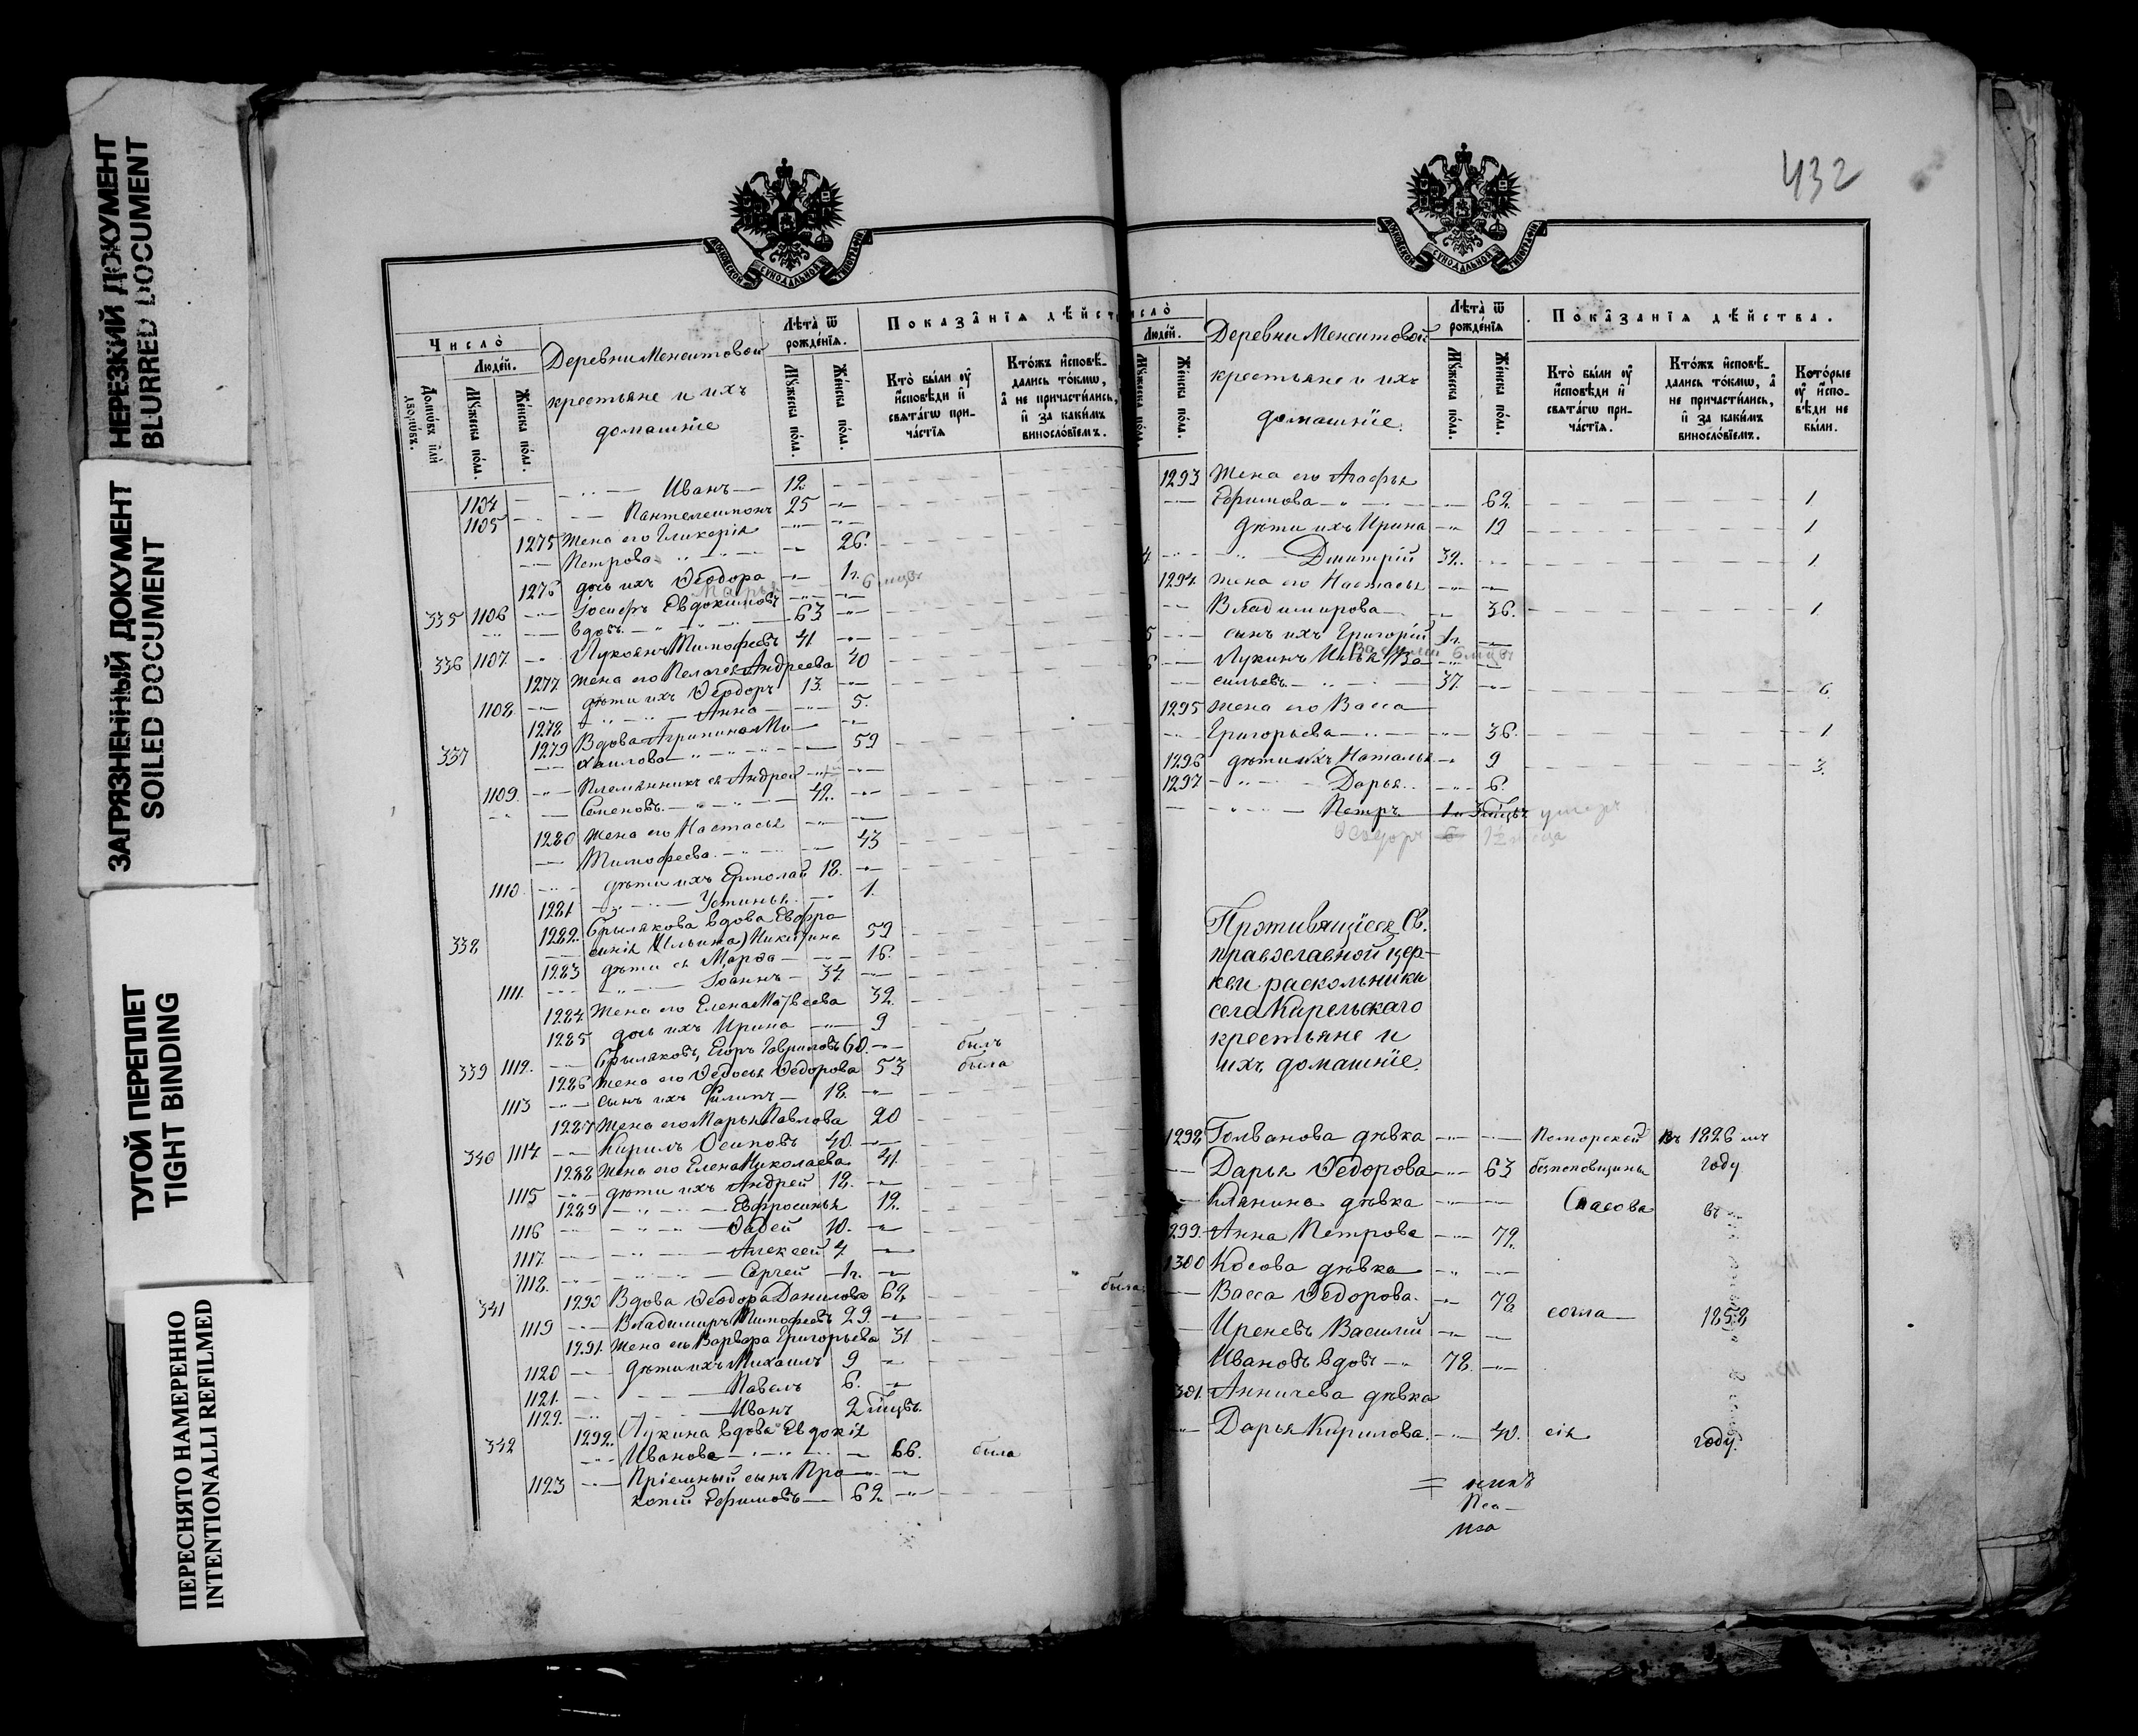 НЕРЕЗКИЙ ДОКУМЕНТ
BLURRED DOCUMENT
ЗАГРЯЗНЕННЫЙ ДОКУМЕНТ
SOILED DOCUMENT
ТУГОЙ ПЕРЕПЛЕТ
TIGHT BINDING
ПЕРЕСНЯТО НАМЕРЕННО
INTENTIONALLI REFILMED
МОСКОВСКОЙ СУНОДАЛЬНОЙ ТИПОГРАФІИ
Число̀
Людей.
Домѡвъ или дворѡвъ.
Мꙋжеска пола.
Женска пола.
Деревни Менситовой
крестьяне и ихъ
домашніе
Лѣта ѿ рожденїѧ.
Мꙋжеска пола.
Женска пола.
Показанїѧ дѣйст
Кто были ᲂу҆ исповѣди и свѧтагѡ причастїѧ
Ктожъ исповѣдались токмѡ, а не причастились, и за какимъ винословїемъ.
1104 Иванъ 12.
1105 Пантелеимонъ 25
1275 Жена его Гликерія
Петрова 26.
1276 дочь ихъ Ѳеодора 1 г.
Марья 6 мцвъ
335 1106 Іосифъ Евдокимовъ
вдовъ 63
336 1107. Лукоянъ Тимофеевъ 41.
1277. Жена его Пелагея Андреева 40
1108. дѣти ихъ Ѳеодоръ 13.
1278 Анна 5.
337 1279 Вдова Агрипина Ми-
хаилова 59
1109. Племянникъ ея Андрей
Семеновъ 42.
1280 Жена его Настасья
Тимофеева 43
1110. дѣти ихъ Ермолай 18.
1281 Устинья 1.
338 1282. Брылякова вдова Евфро-
синія (Ильина) Никитина 59
1283 дѣти ея Марѳа 16.
1111. Іоаннъ 34
1284. Жена его Елена Матвеева 32.
1285 дочь ихъ Ирина 9
339 1112. Брыляковъ, Егоръ Гавриловъ 60. былъ
1286 Жена его Ѳедосья Ѳедорова 53 была
1113 сынъ ихъ Филипъ 18.
1287 Жена его Марья Павлова 20
340 1114. Кирилъ Осиповъ 40.
1288 Жена его Елена Николаева 41.
1115 дѣти ихъ Андрей 18.
1289 Евфросинья 12.
1116 Ѳадей 10.
1117. Алексей 4.
1118. Сергей 1 г.
341 1290 Вдова Ѳеодора Данилова 62. была
1119 Владимиръ Тимофеевъ 29.
1291. Жена его Варвара Григорьева 31.
1120 дѣти ихъ Михаилъ 9
1121. Павелъ 6.
1122. Иванъ 2 мцвъ.
342 1292. Лукина вдова Евдокія
Иванова 66. была
1123 Пріемный сынъ Про-
копій Ефимовъ 62.
432
МОСКОВСКОЙ СУНОДАЛЬНОЙ ТИПОГРАФІИ
исло̀
Людей.
Мꙋжеска пола.
Женска пола.
Деревни Менситовой
крестьяне и ихъ
домашніе.
Лѣта ѿ рожденїѧ
Мꙋжеска пола.
Женска пола.
Показанїѧ дѣйства.
Кто были ᲂу҆ исповѣди и свѧтагѡ причастїѧ.
Ктожъ исповѣдались токмѡ, а не причастились, и за какимъ винословїемъ.
Которые ᲂу҆ исповѣди не были.
1293 Жена его Агафья
Ефимова 62. 1
дѣти ихъ Ирина 19 1
4. Дмитрій 32. 1
1294. Жена его Настасья
Владимирова 36. 1
5 сынъ ихъ Григорій 1 г.
Василій 6 мцвъ
6 Лукинъ Илья Ва-
сильевъ 37. 6
1295 Жена его Васса
Григорьева 36. 1
1296 дѣти ихъ Наталья 9 3.
1297 Дарья 6.
Петръ умеръ
Ѳедоръ 6 1½ мсца
Противящіеся Св.
православной цер-
кви раскольники
села Кирельскаго
крестьяне и
ихъ домашніе.
1298 Голванова дѣвка Поморской въ 1826 мъ
Дарья Ѳедорова 63 безпоповщины году
Клянина дѣвка Спасова въ
299. Анна Петрова 72.
1300 Косова дѣвка
Васса Ѳедорова. 78 согла 1858
Иреневъ Василій
Ивановъ вдовъ 78.
301. Анничева дѣвка
Дарья Кирилова. 40. сія году.